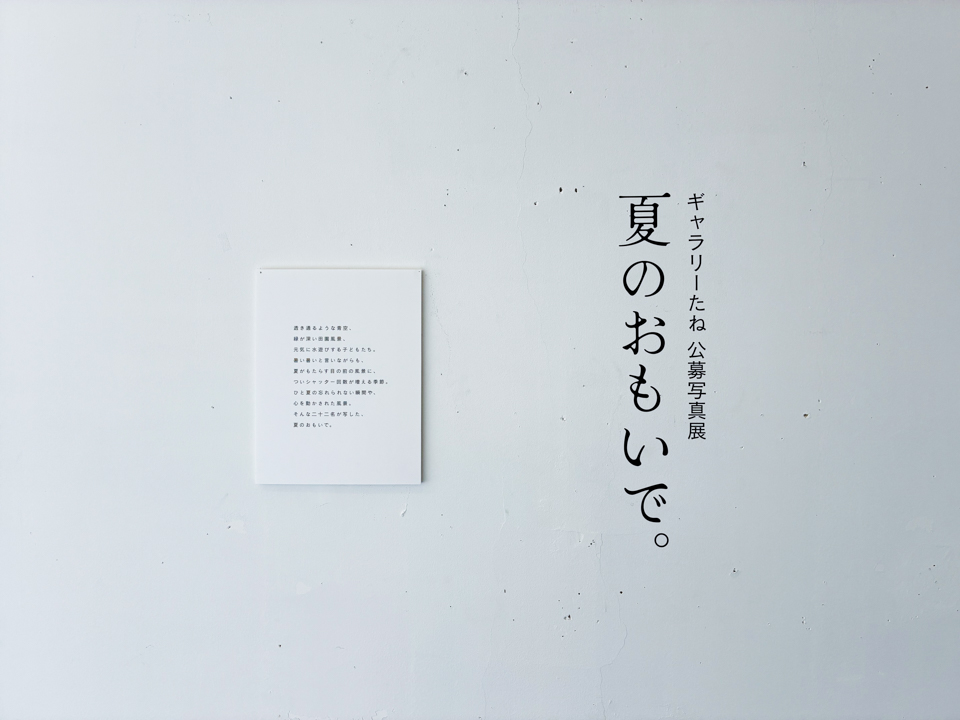 ギャラリーたね 公募写真展
夏のおもいで。
透き通るような青空、
緑が深い田園風景、
元気に水遊びする子どもたち。
暑い暑いと言いながらも、
夏がもたらす目の前の風景に、
ついシャッター回数が増える季節。
ひと夏の忘れられない瞬間や、
心を動かされた風景。
そんな二十二名が写した、
夏のおもいで。